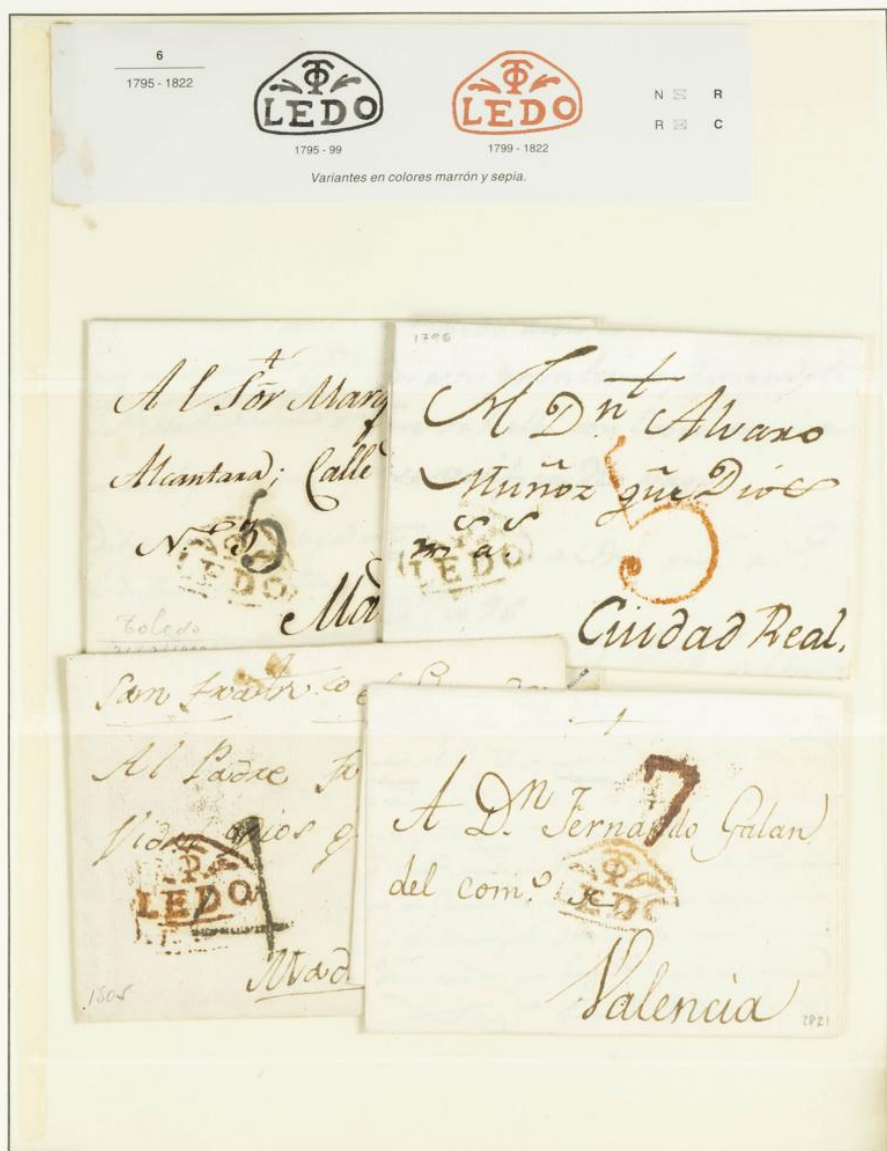 6
1795 - 1822
TO
LEDO
1795 - 99
TO
LEDO
1799 - 1822
N R
R C
Variantes en colores marrón y sepia.
Al Sor Marq
Alcantara; Calle
N.º 3
5
TO
LEDO
Ma
Toledo
1796
A Dn. Alvaro
Muñoz qũe Dios
m.s a.s
5
TO
LEDO
Ciudad Real.
San
Al Padre
4
TO
LEDO
Mad
1805
7
A Dn. Fernando Galan
del com.º
TO
LEDO
Valencia
1821